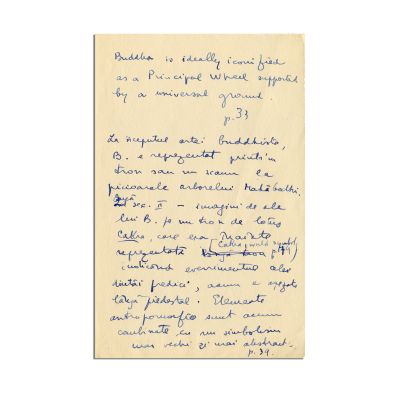 Buddha is ideally iconified
as a Principal Wheel supported
by a universal ground.
p. 33
La începutul artei buddhiste,
B. e reprezentat printr'un
tron sau un scaun la
picioarele arborelui Mahâbodhi.
După sec. II – imagini de ale
lui B. pe un tron de lotus
Cakra, care era înainte
reprezentată (Cakra, world symbol, p.
indicând evenimentul
predici, acum e
lângă piedestal. Elemente
antropomorfice sunt acum
combinate cu un simbolism
mai vechi și mai abstract.
p. 39.